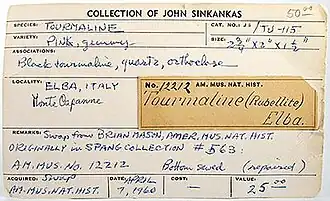 COLLECTION OF JOHN SINKANKAS 50.00
SPECIES: TOURMALINE CAT. NO.: JS / TU-115
VARIETY: Pink, gemmy SIZE: 2¾" x 2" x 1½"
ASSOCIATIONS:
Black tourmaline, quartz, orthoclase
LOCALITY: No. 12212 AM. MUS. NAT. HIST.
ELBA, ITALY Tourmaline (Rubellite)
Monte Capanne Elba.
REMARKS: Swap from BRIAN MASON, AMER. MUS. NAT. HIST.
ORIGINALLY IN SPANG COLLECTION # 563;
AM. MUS. NO. 12212 Bottom sawed (repaired)
ACQUIRED: SWAP DATE: APRIL COST: VALUE:
AM. MUS. NAT. HIST. 7, 1960 — 25.00